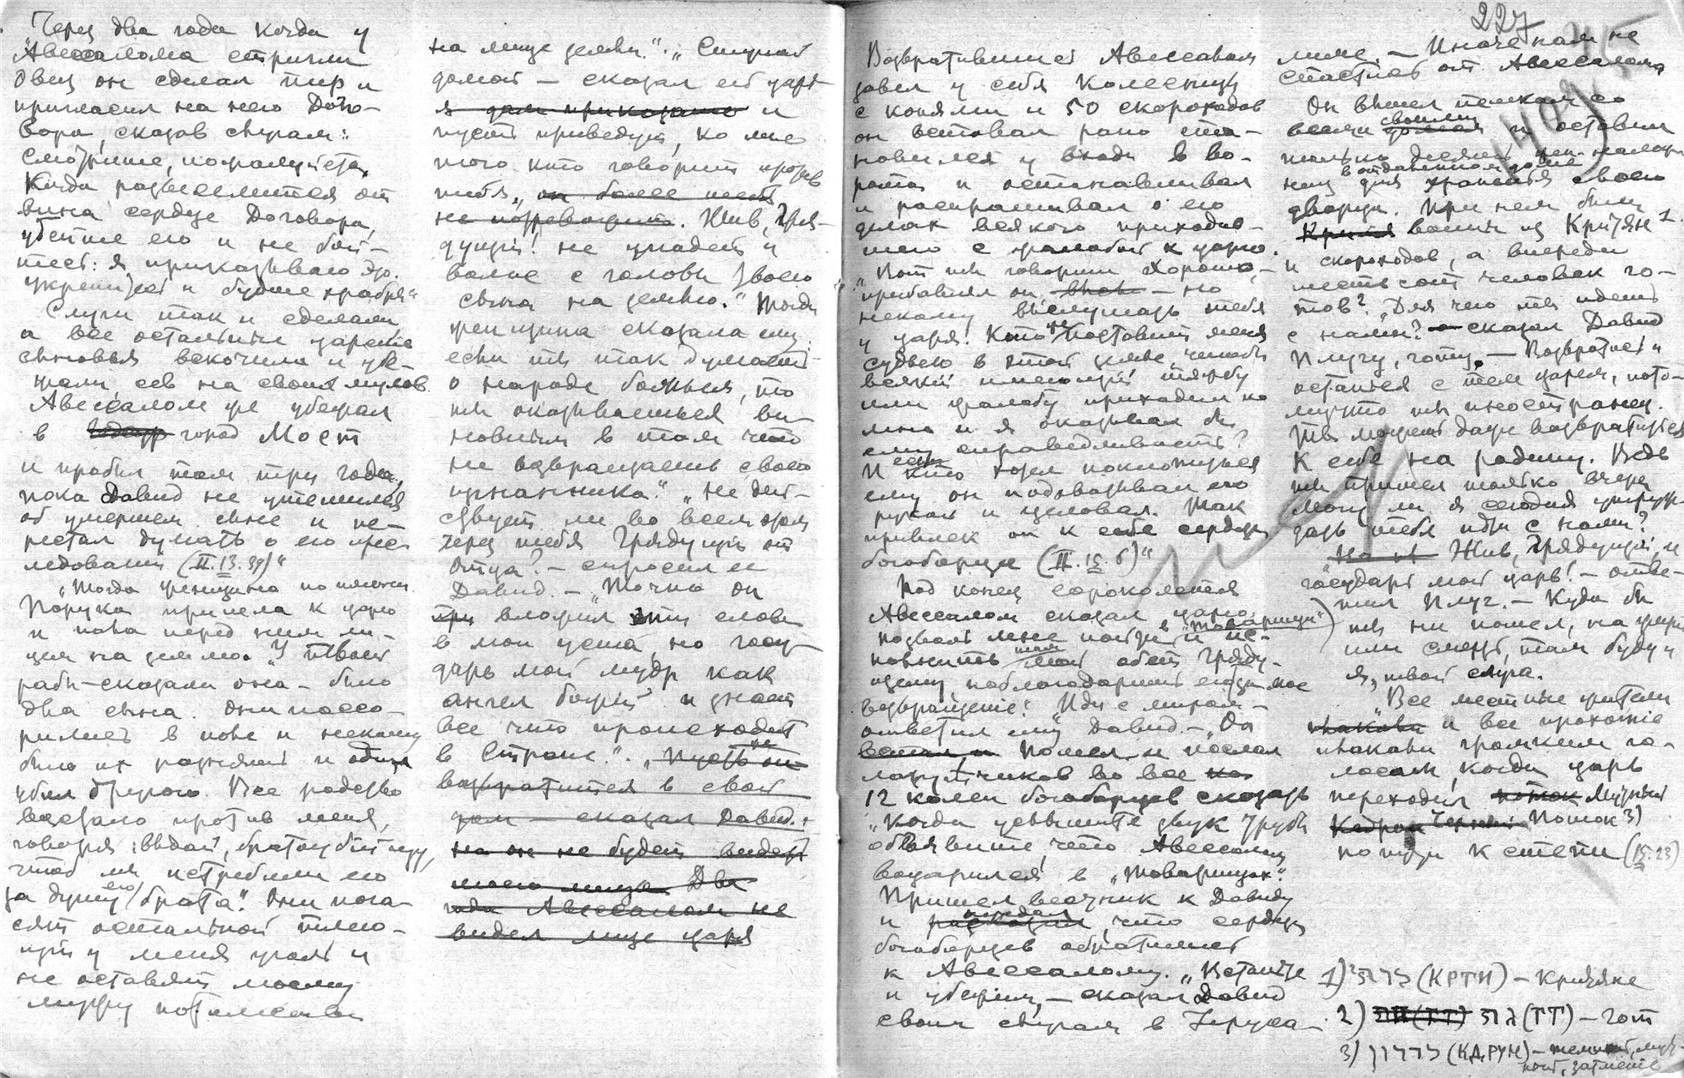 Через два года когда у
Авессалома стригли
овец он сделал пир и
пригласил на него Дого-
вора, сказав слугам:
Смотрите, пожалуйста,
Когда развеселится от
вина сердце Договора,
убейте его и не бой-
тесь: я приказываю это.
укрепитесь и будьте храбры"
Слуги так и сделали,
а все остальные царские
сыновья вскочили и убе-
жали, сев на своих мулов.
Авессалом же убежал
в город Мост
и пробыл там три года,
пока Давид не утешился
об умершем сыне и пе-
рестал думать о его прес-
ледовании (II.13.39)"
"Тогда женщина по имени
Порука пришла к царю
и пала перед ним ли-
цем на землю. "У твоей
рабы - сказала она - было
два сына. Они поссо-
рились в поле и некому
было их разнять и один
убил другого. Все родство
восстало против меня,
говоря: выдай, братоубийцу,
чтоб мы истребили его
за душу его брата." Они пога-
сят остальной тлею-
щий у меня уголь и
не оставят моему
мужу потомства
на лице земли". "Ступай
домой - сказал ей царь
я дам приказание и
пусть приведут ко мне
того кто говорит против
тебя, он более тебя
не потревожит. Жив, Гря-
дущий! не упадет и
волос с головы твоего
сына на землю." Тогда
женщина сказала ему:
если ты так думаешь
о народе божьем, то
ты оказываешься ви-
новным в том что
не возвращаешь своего
изгнанника." "Не дей-
ствует ли во всем этом
через тебя Грядущий от
Отца? - спросил ее
Давид. - "Точно он
вложил эти слова
в мои уста, но госу-
дарь мой мудр как
ангел божий и знает
все что происходит
в Стране". "Пусть он
возвратится в свой
дом - сказал Давид.
но он не будет видеть
моего лица Два
года Авессалом не
видел лице царя
227
Возвратившись Авессалом
завел у себя колесницу
с конями и 50 скороходов
он вставал рано ста-
новился у входа в во-
рота и останавливал
и расспрашивал о его
делах всякого приходив-
шего с жалобой к царю.
"Вот ты говоришь хорошо, -
прибавлял он, - но
некому выслушать тебя
у царя! Кто поставит меня
судьею в этой земле, чтобы
всякий имеющий тяжбу
или жалобу приходил ко
мне и я оказывал бы
ему справедливость?
И если кто хотел поклониться
ему он подавал ему
руку и целовал. Так
привлек он к себе сердца
богоборцев (II.15.6)"
Под конец сорокалетия
Авессалом сказал царю
позволь мне пойти в "Товарищи" и ис-
полнить там мой обет Гряду-
щему, поблагодарить его за мое
возвращение! Иди с миром -
ответил ему Давид. - Он
Пошел и послал
лазутчиков во все
12 колен богоборцев сказать
"Когда услышите звук трубы
объявите что Авессалом
воцарился в "Товарищах".
Пришел вестник к Давиду
и передал, что сердце
богоборцев обратилось
к Авессалому. "Встаньте
и убежим, - сказал Давид
своим слугам в Іеруса-
лиме. - Иначе нам не
спастись от Авессалома
Он вышел пешком со
всеми своими и оставил
только десять
ниц для хранения своего
дворца. При нем были
Крити воины из Критян 1.
и скороходов, а впереди
шестьсот человек го-
тов? "Для чего ты идешь
с нами? - сказал Давид
Плугу, готу. - Возвратись и
останься с тем царем, пото-
му что ты иностранец.
Ты можешь даже возвратиться
к себе на родину. Ведь
ты пришел только вчера
могу ли я сегодня принуж-
дать тебя идти с нами?
Жив, Грядущий, и
государь мой царь! - отве-
тил Плуг. - Куда бы
ты ни пошел, на жизнь
или смерть, там буду и
я, твой слуга.
"Все местные жители
плакали и все прохожие
плакали громким го-
лосом, когда царь
переходил поток Мутный
Кедрон Черный Поток 3)
по пути к степи (15.23)
1) כרתי (КРТИ) - Критяне
2) גת (ГТ) - гот
3) קדרון (КДРУН) - темный, мут-
ный, затмение